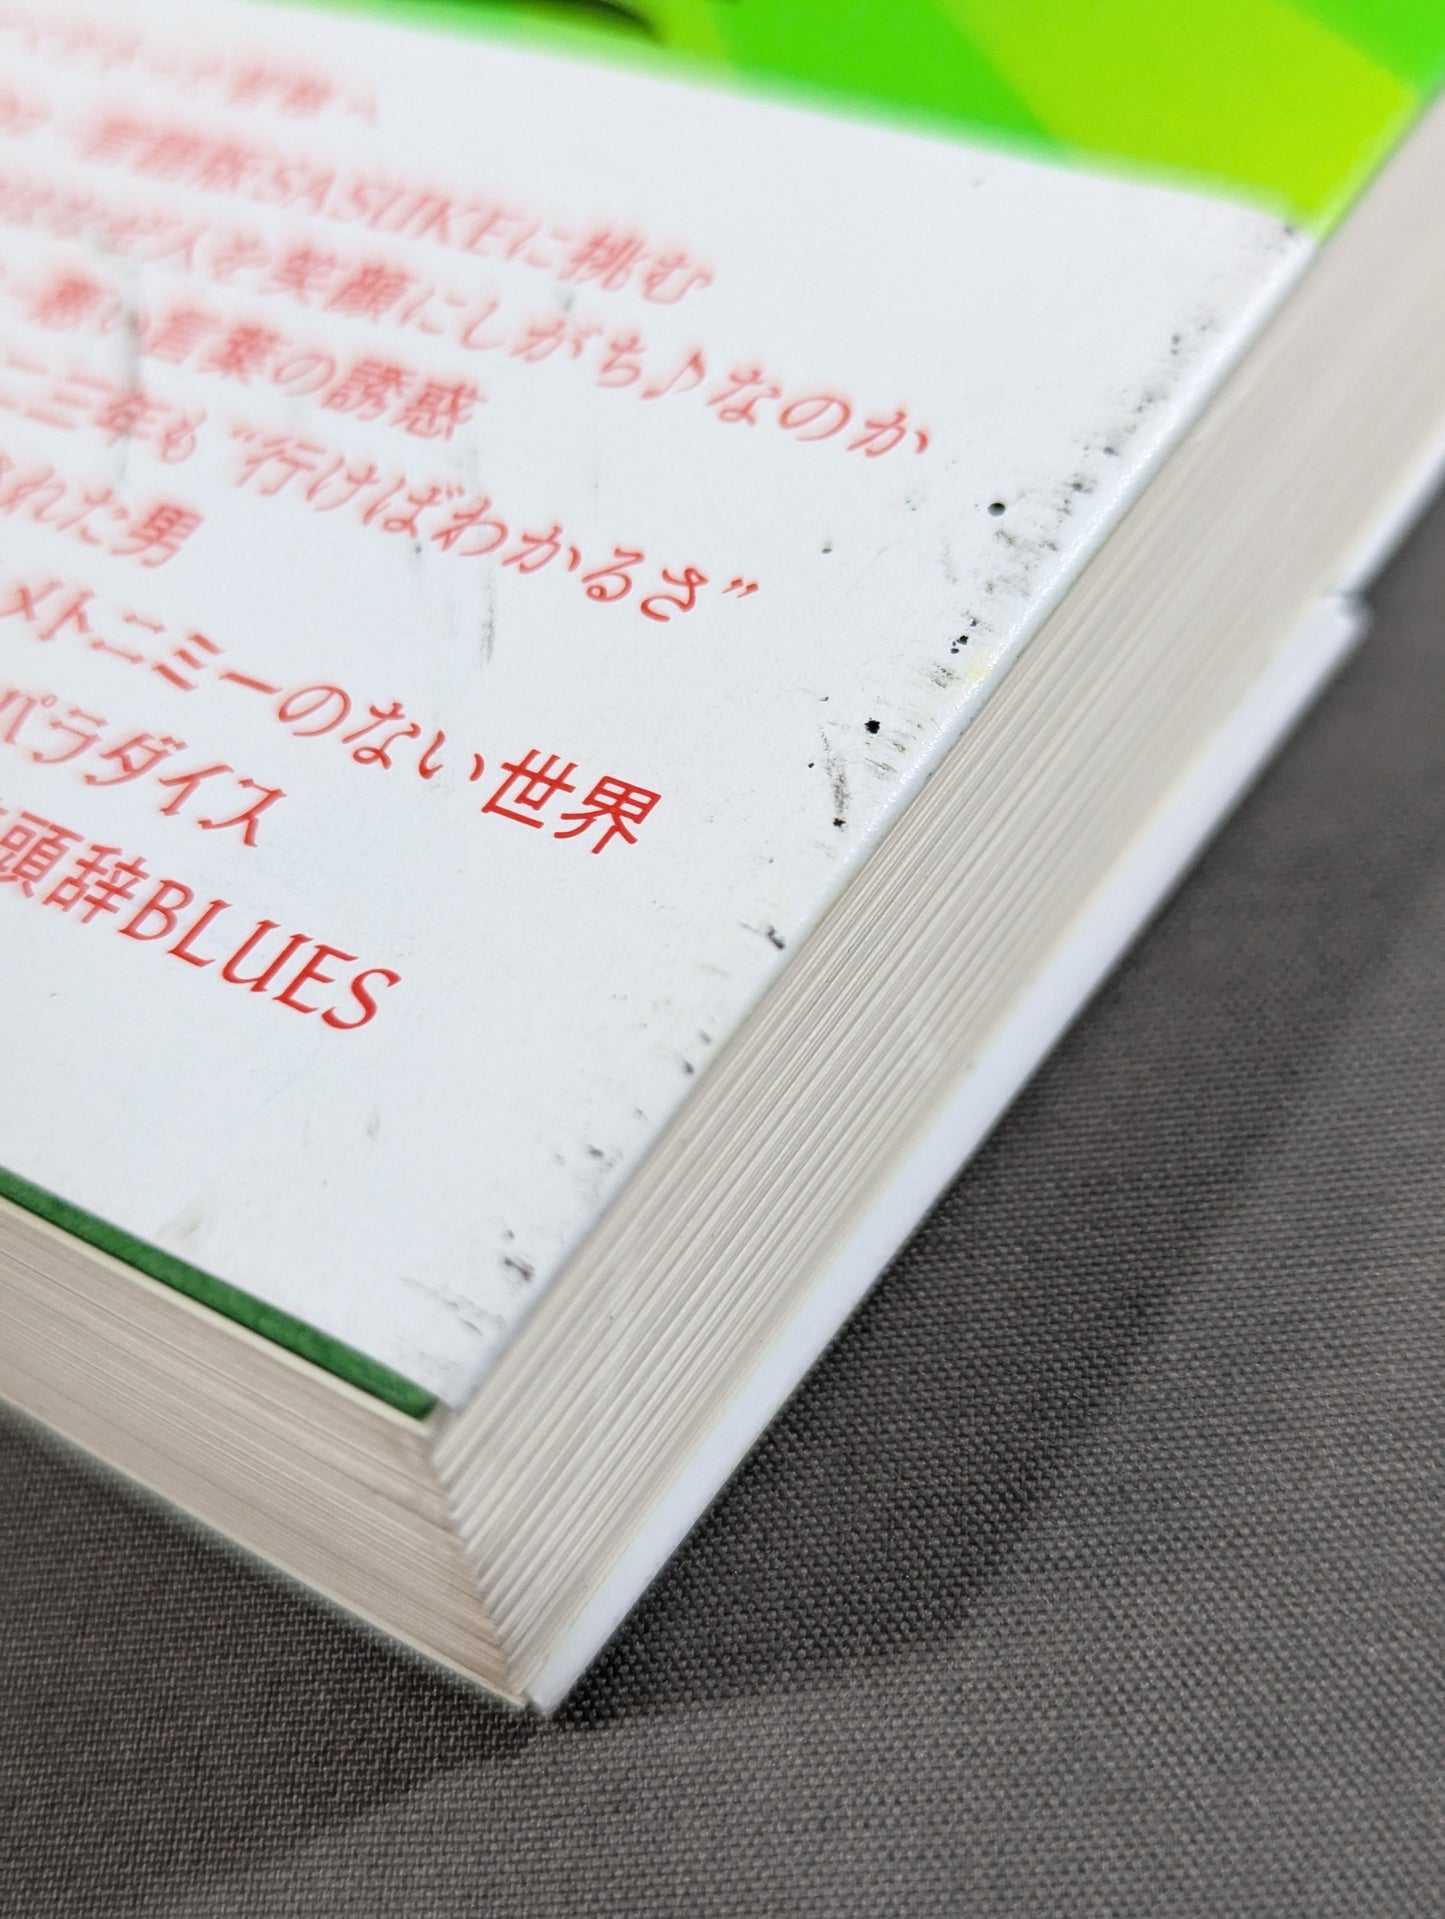 言語版SASUKEに挑む
なぜ人を笑顔にしがち♪なのか
悪い言葉の誘惑
二三年も“行けばわかるさ”
された男
メトニミーのない世界
パラダイス
頭辞BLUES